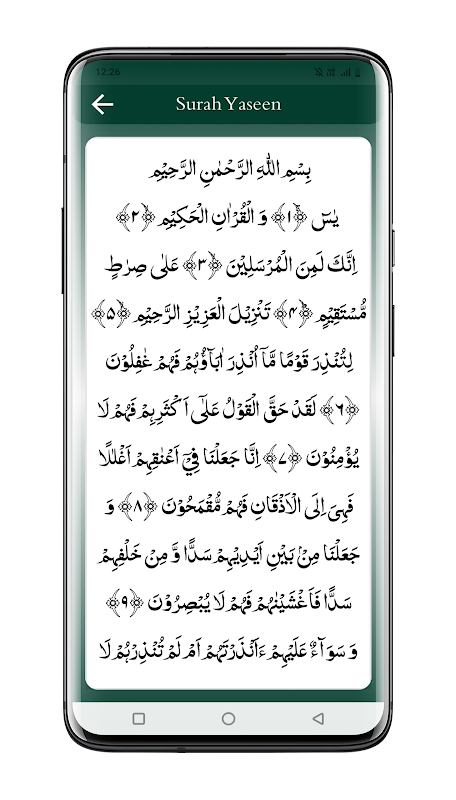 12:26
Surah Yaseen
بِسْمِ اللّٰهِ الرَّحْمٰنِ الرَّحِيْمِ
يٰسٓ ﴿۱﴾ وَ الْقُرْاٰنِ الْحَكِيْمِ ﴿۲﴾
اِنَّكَ لَمِنَ الْمُرْسَلِيْنَ ﴿۳﴾ عَلٰى صِرٰطٍ
مُّسْتَقِيْمٍ ﴿۴﴾ تَنْزِيْلَ الْعَزِيْزِ الرَّحِيْمِ ﴿۵﴾
لِتُنْذِرَ قَوْمًا مَّاۤ اُنْذِرَ اٰبَآؤُهُمْ فَهُمْ غٰفِلُوْنَ
﴿۶﴾ لَقَدْ حَقَّ الْقَوْلُ عَلٰۤى اَكْثَرِهِمْ فَهُمْ لَا
يُؤْمِنُوْنَ ﴿۷﴾ اِنَّا جَعَلْنَا فِيْۤ اَعْنٰقِهِمْ اَغْلٰلًا
فَهِىَ اِلَى الْاَذْقَانِ فَهُمْ مُّقْمَحُوْنَ ﴿۸﴾ وَ
جَعَلْنَا مِنْۢ بَيْنِ اَيْدِيْهِمْ سَدًّا وَّ مِنْ خَلْفِهِمْ
سَدًّا فَاَغْشَيْنٰهُمْ فَهُمْ لَا يُبْصِرُوْنَ ﴿۹﴾
وَ سَوَآءٌ عَلَيْهِمْ ءَاَنْذَرْتَهُمْ اَمْ لَمْ تُنْذِرْهُمْ لَا